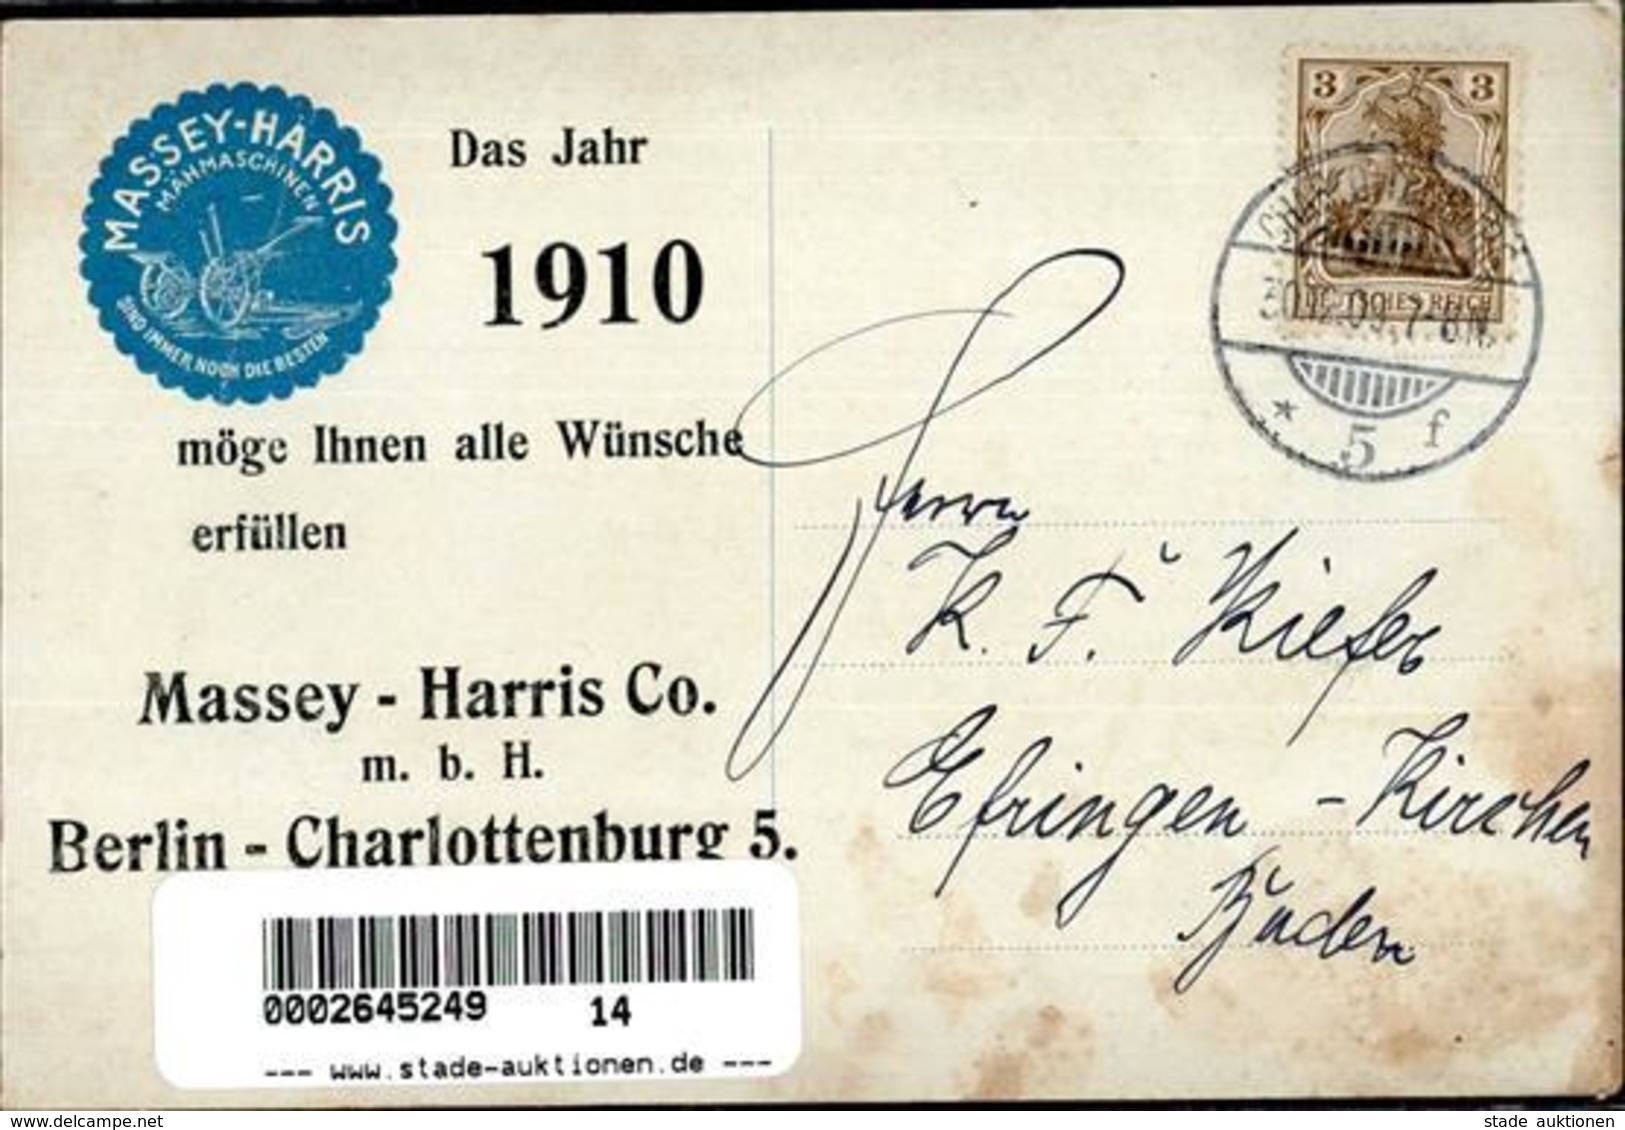 MASSEY-HARRIS
MÄHMASCHINEN
SIND IMMER NOCH DIE BESTEN
Das Jahr
1910
möge Ihnen alle Wünsche
erfüllen
Massey - Harris Co.
m. b. H.
Berlin - Charlottenburg 5.
3 3
DEUTSCHES REICH
CHARLOTTENBURG
30.12.09. 7-8 N.
* 5 f
Herrn
K. F. Kiefer
Efringen - Kirchen
Baden
0002645249 14
--- www.stade-auktionen.de ---
stade auktionen